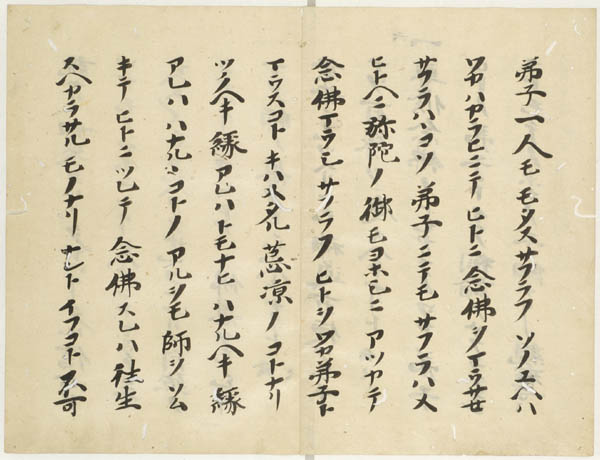 弟子一人モモタスサフラフソノユヘハ
ワカハカラヒニテヒトニ念佛ヲマウサセ
サフラハヽコソ弟子ニテモサフラハメ
ヒトヘニ弥陀ノ御モヨホシニアツカテ
念佛マウシサフラフヒトヲワカ弟子ト
マウスコトキハメタル荒凉ノコトナリ
ツクヘキ縁アレハトモナヒハナルヘキ縁
アレハハナルヽコトノアルヲモ師ヲソム
キテヒトニツレテ念佛スレハ往生
スヘカラサルモノナリナントイフコト不可